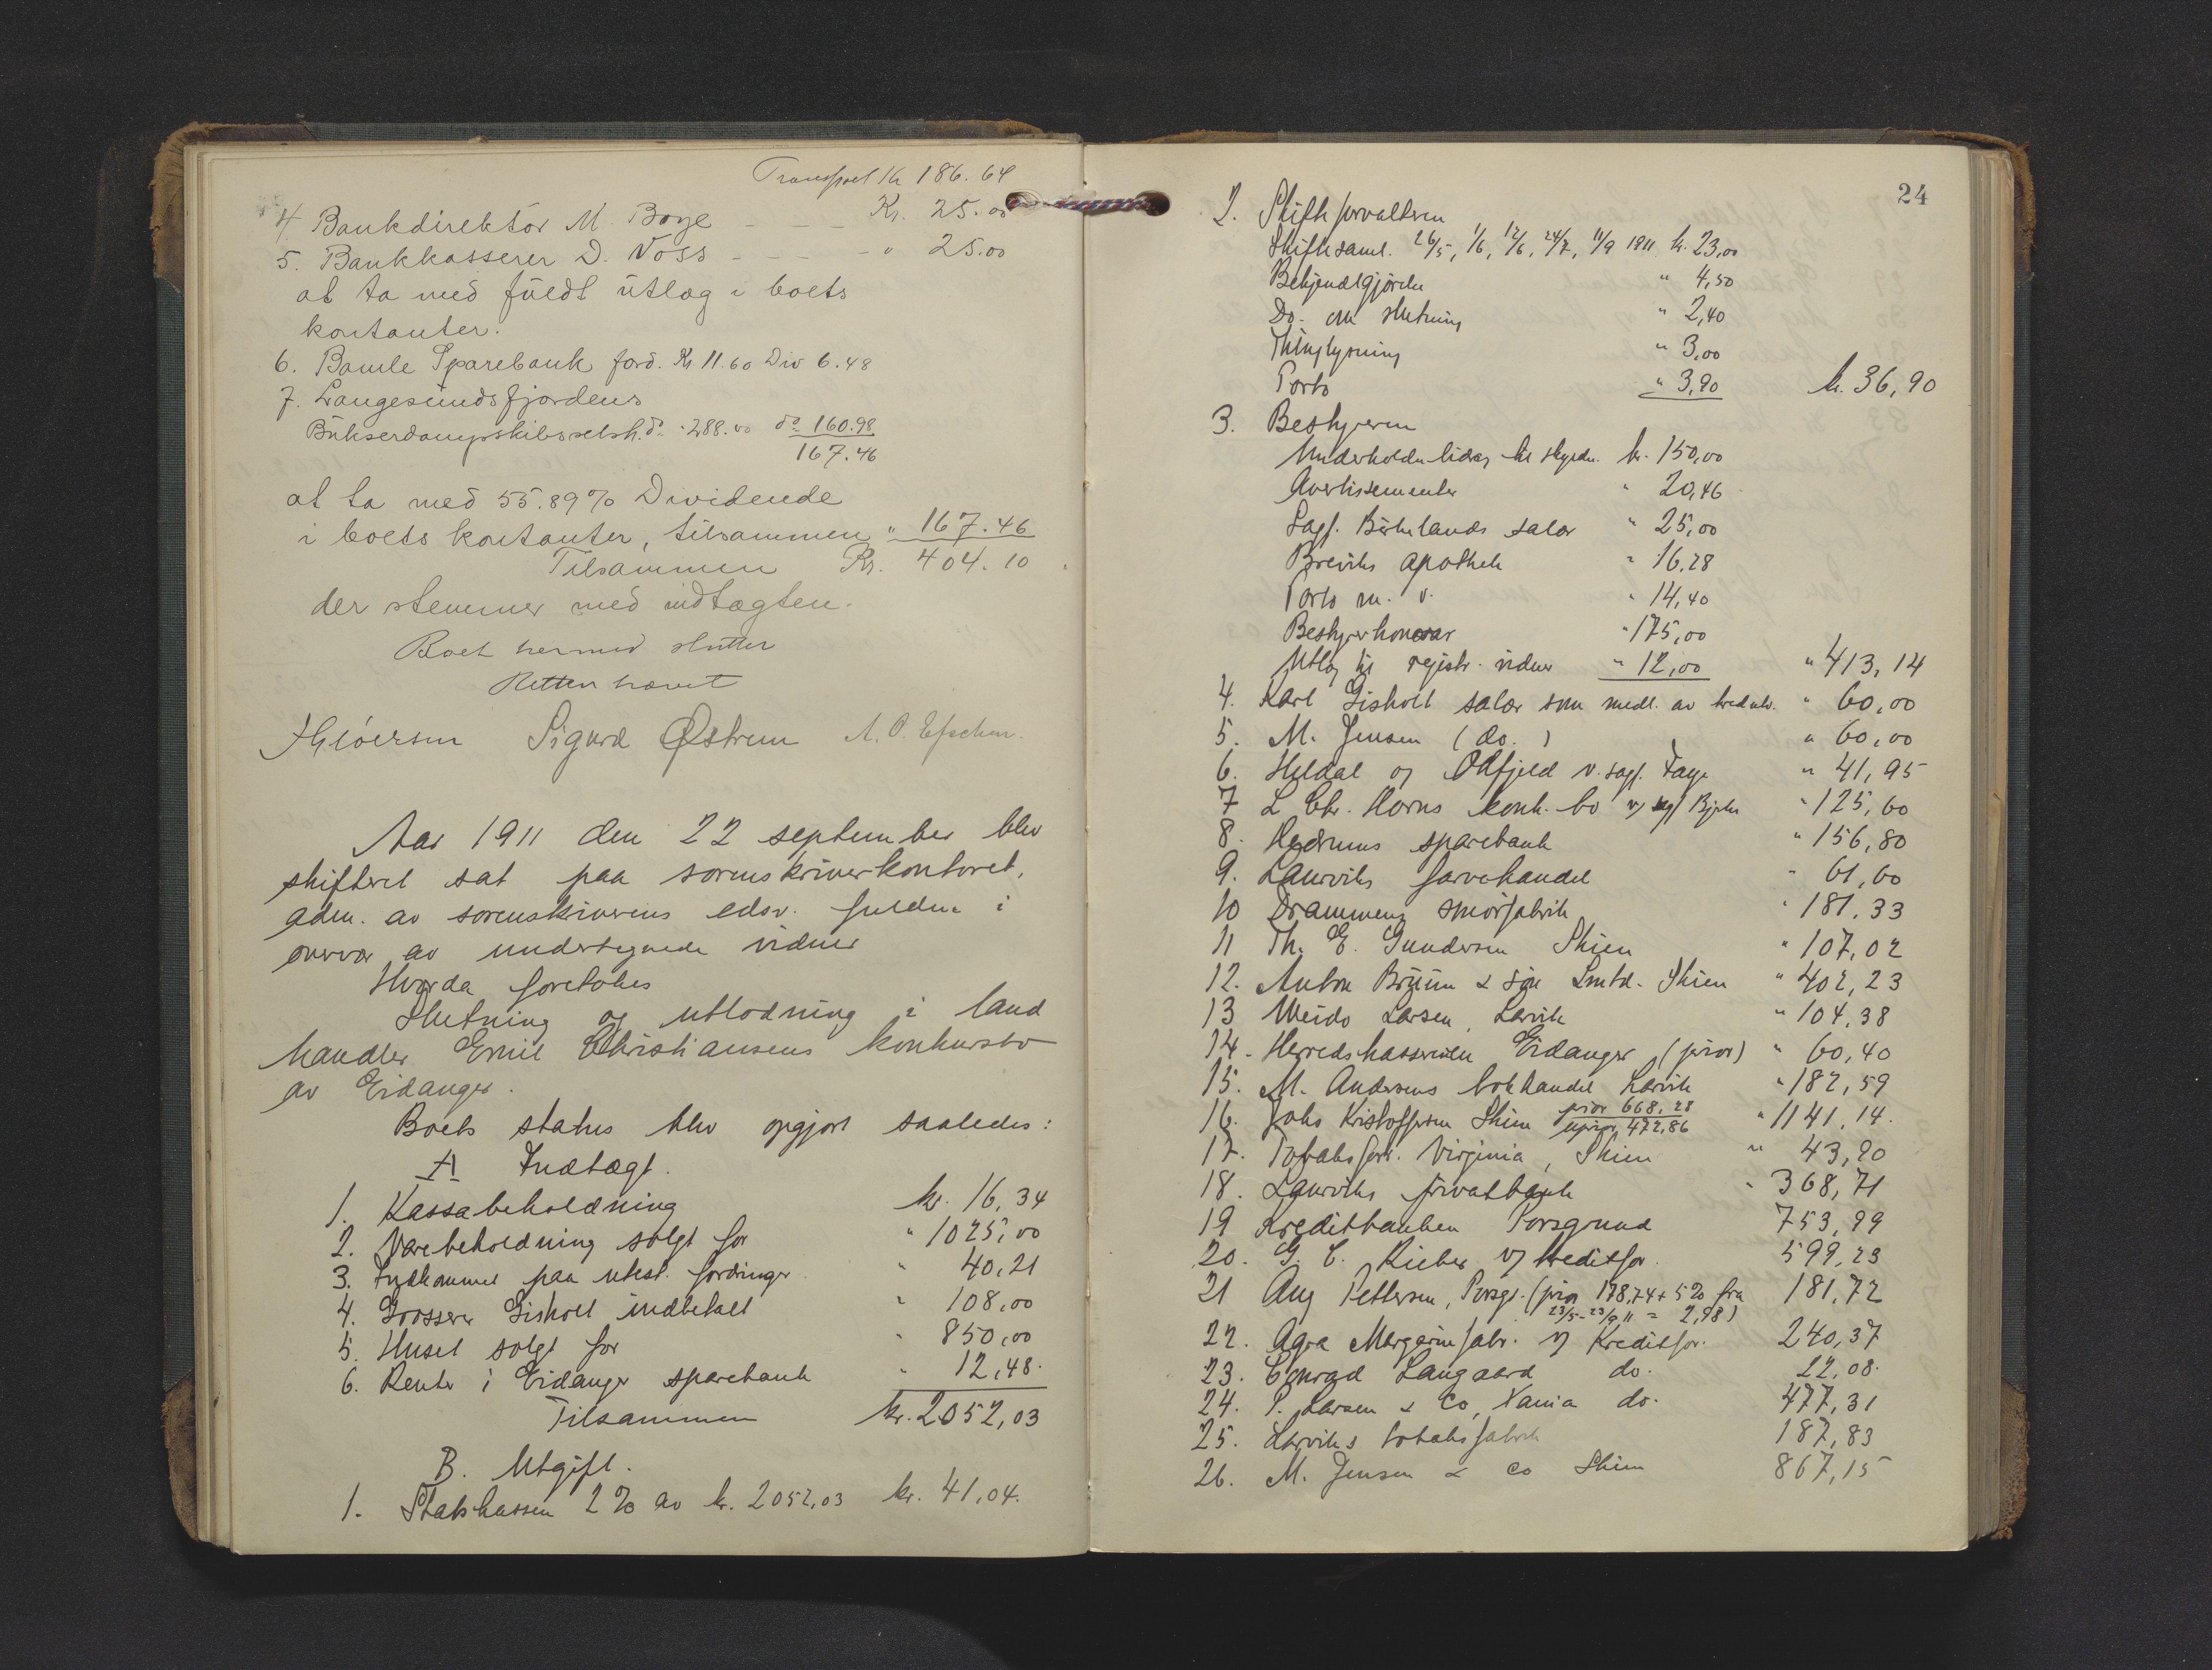 Transport Kr 186.64
4 Bankdirektör M. Boye - - - Kr. 25.00
5. Bankkasserer D. Voss - - - - " 25.00
at ta med füldt ütlæg i boets
kontanter.
6. Bamle Sparebank ford. Kr 11.60 Div 6.48
7. Langesundsfjordens
Bükserdampskibsselsk. do. " 288.00 do 160.98
167.46
at ta med 55.89% Dividende
i boets kontanter, tilsammen " 167.46
Tilsammen Kr. 404.10
der stemmer med indtægten.
Boet hermed sluttet
Retten hævet
Sigurd Østrem
Aar 1911 den 22 september blev
skifteret sat paa sorenskriverkontoret,
adm. av sorenskriverens edsv. fuldm. i
overvær av undertegnede vidner
Hvorda foretokes
Slutning og utlodning i land
handler Emil Christiansens konkursbo
av Eidanger.
Boets status blev opgjort saaledes:
A Indtægt.
1. Kassabeholdning kr. 16,34
2. Varebeholdning solgt for " 1025,00
3. Indkommet paa utest. fordringer " 40,21
4. Grosserer Gisholt indbetalt " 108,00
5. Huset solgt for " 850,00
6. Renter i Eidanger sparebank " 12,48.
Tilsammen kr. 2052,03
B. Utgift.
1. Statskassen 2% av kr. 2052,03 kr. 41,04.
24
2. Skifteforvalteren
Skiftesaml. 26/5, 1/6, 12/6, 24/7, 11/9 1911 kr. 23,00
Bekjendtgjörelse " 4,50
Do. om slutning " 2,40
Thinglysning " 3,00
Porto " 3,90 kr. 36,90
3. Bestyreren
Underholdn.bidrag til skyldn. kr. 150,00
Avertissementer " 20,46
Sagf. Birkelands salær " 25,00
Breviks apothek " 16,28
Porto m. v. " 14,40
Bestyrerhonorar " 175,00
Utlæg til registr. vidner " 12,00 " 413,14
4. Karl Gisholt salær som medl. av kredutv. " 60,00
5. M. Jensen (do.) " 60,00
6. Heldal og Odfjeld v. sagf. Faye " 41,95
7 L Chr. Horns konk. bo v/ sagf " 125,60
8. Hedrums sparebank " 156,80
9. Laurviks farvehandel " 61,60
10 Drammens smörfabrik " 181,33
11 Th. E. Gundersen Skien " 107,02
12. Anton Bruun & sön Lmtd. Skien " 402,23
13 Weido Larsen, Larvik " 104,38
14. Herredskassereren Eidanger (prior) " 60,40
15. M. Andersens bokhandel Larvik " 182,59
16. Johs Kristoffersen Skien prior 668,28 uprior 472,86 " 1141,14.
17. Tobaksfabr. Virginia, Skien " 43,90
18. Laurviks privatbank " 368,71
19 Kreditbanken Porsgrund 753,99
20. G. C. Rieber v/ kreditfor. 599,23
21 Aug Pettersen, Porsgr. (prior 178,74 + 5% fra 181,72
23/5-23/9 11 = 2,98)
22. Agra Margarinfabr. v/ Kreditfor. 240,37
23. Conrad Langaard do. 22,08.
24. P. Larsen & Co, Xania do. 477,31
25. Larviks tobaksfabrik 187,83
26. M. Jensen & Co Skien 867,15